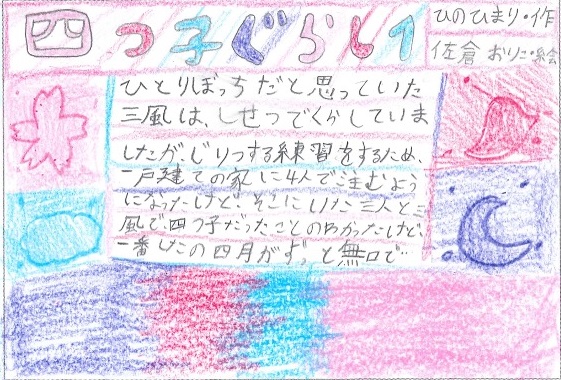 四つ子ぐらし1
ひのひまり・作
佐倉おりこ・絵
ひとりぼっちだと思っていた
三風は、しせつでくらしていま
したが、じりつする練習をするため、
一戸建ての家に4人で住むよう
になったけど、そこにいた三人と三
風で、四つ子だったことのわかったけど、
一番したの四月がずっと無口で…